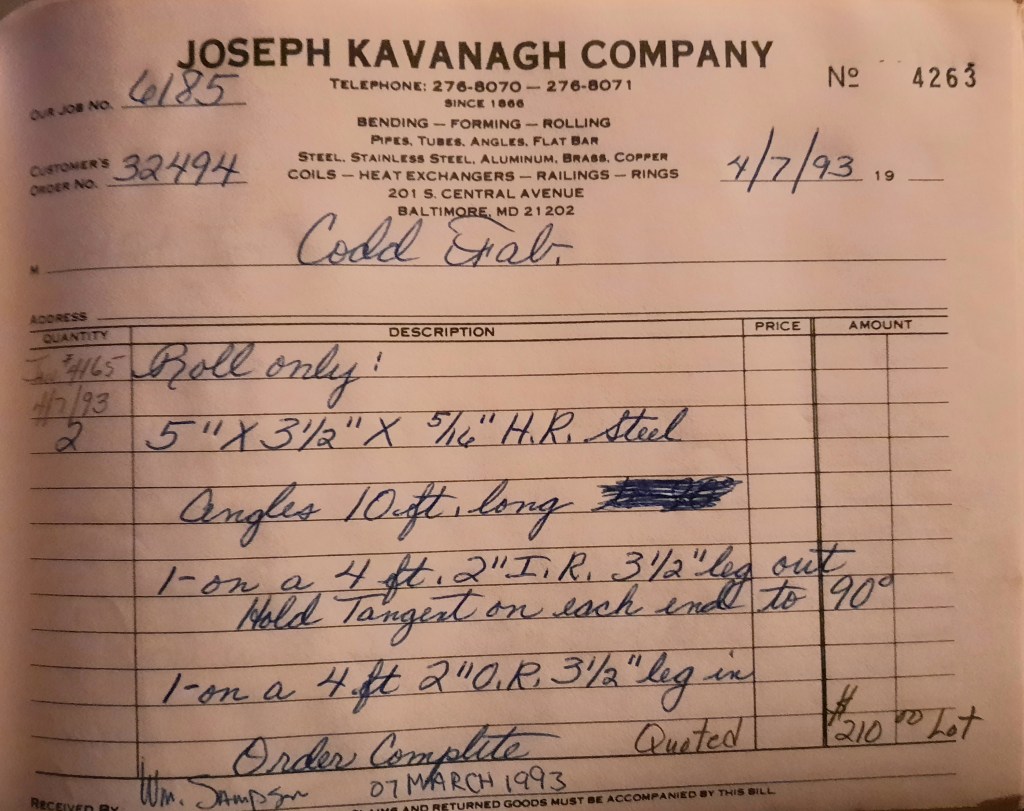 JOSEPH KAVANAGH COMPANY
No 4263
TELEPHONE: 276-8070 — 276-8071
SINCE 1866
OUR JOB NO. 6185
BENDING — FORMING — ROLLING
PIPES, TUBES, ANGLES, FLAT BAR
STEEL, STAINLESS STEEL, ALUMINUM, BRASS, COPPER
CUSTOMER'S ORDER NO. 32494
COILS — HEAT EXCHANGERS — RAILINGS — RINGS
4/7/93 19
201 S. CENTRAL AVENUE
BALTIMORE, MD 21202
M Codd Fab.
ADDRESS
QUANTITY DESCRIPTION PRICE AMOUNT
#4165 Roll only:
4/7/93
2 5" X 3 1/2" X 5/16" H.R. Steel
Angles 10 ft. long
1-on a 4 ft. 2" I.R. 3 1/2" leg out
Hold Tangent on each end to 90°
1-on a 4 ft 2" O.R. 3 1/2" leg in
Order Complete Quoted $210 00 Lot
Wm. Sampson 07 MARCH 1993
RECEIVED BY
AND RETURNED GOODS MUST BE ACCOMPANIED BY THIS BILL